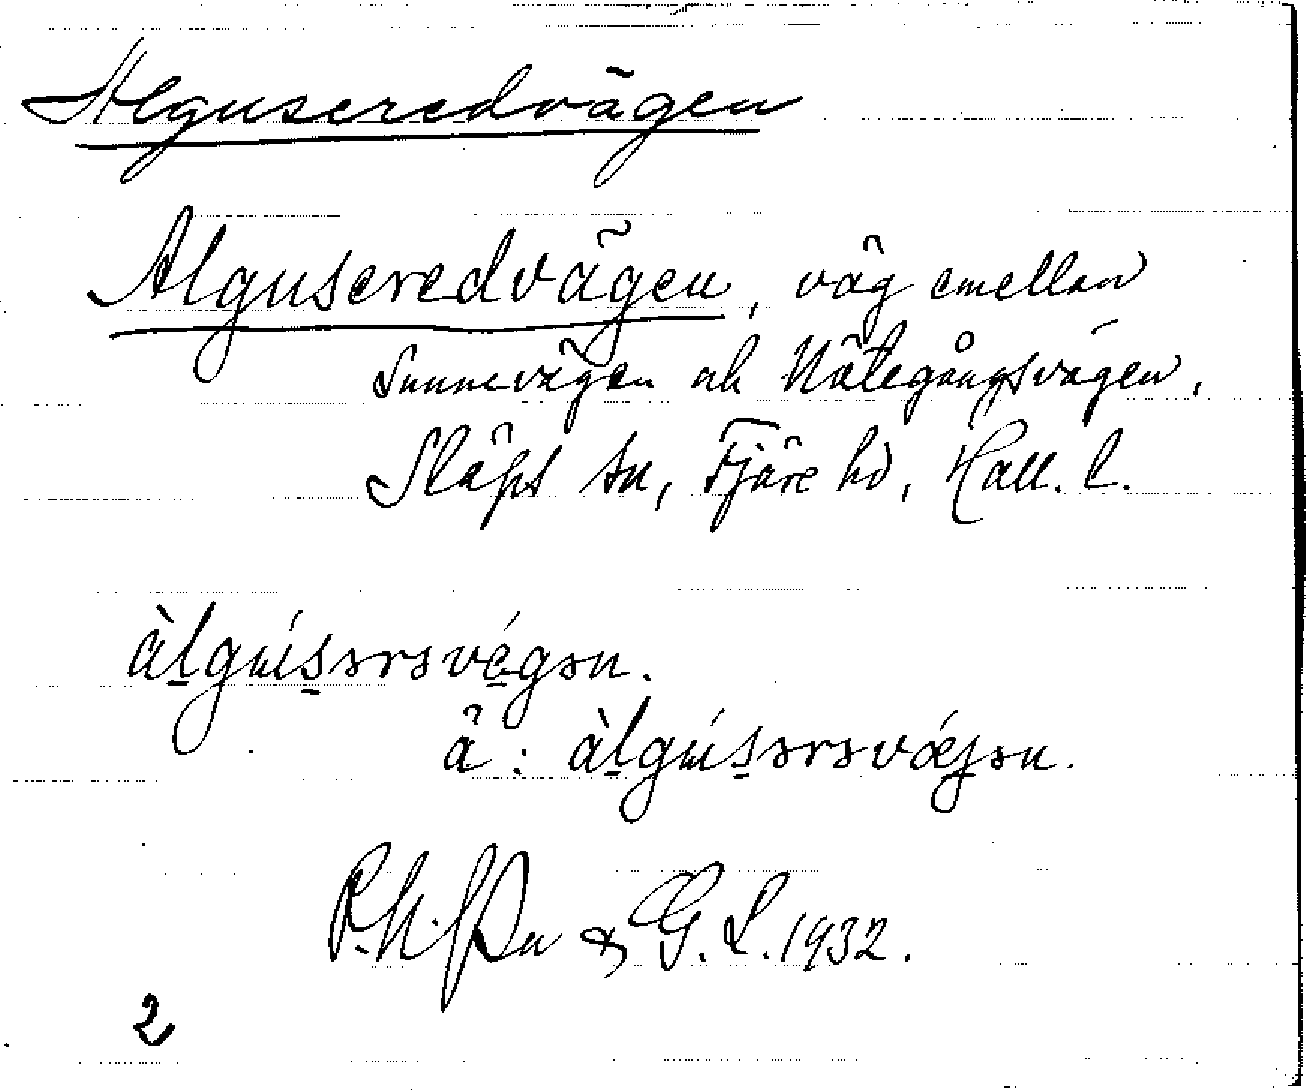 Alguseredvägen
Alguseredvägen, väg emellan
Sunnevägen och Nötegångsvägen,
Släps sn, Fjäre hd, Hall. l.
àlgúsərsvégən.
ä: àlgúsərsvǽgən.
& G. L. 1932.
2